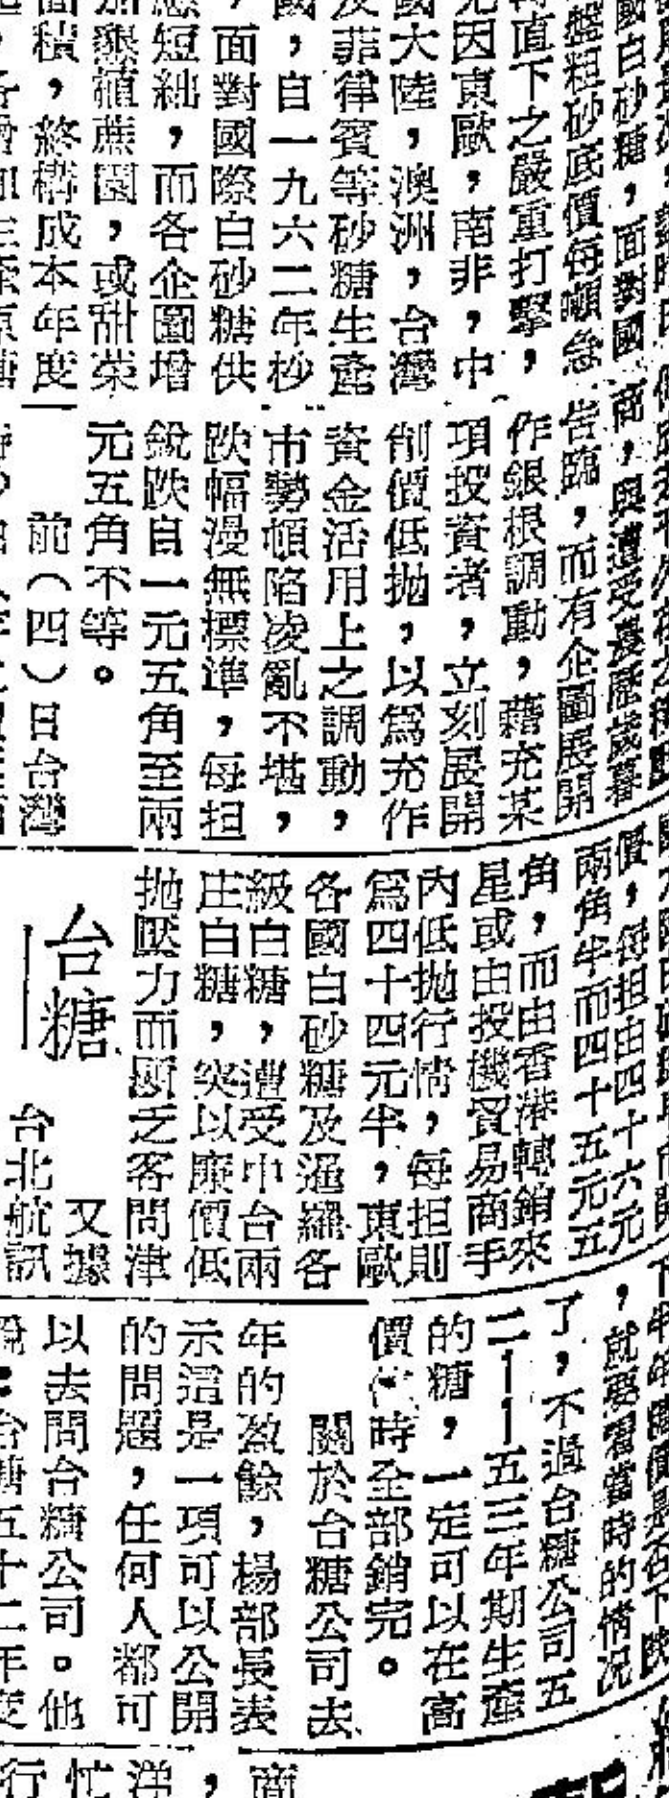 國白砂糖，面對國
盤粗砂底價每噸急
直下之嚴重打擊，
因東歐，南非，中
國大陸，澳洲，台灣
及菲律賓等砂糖生產
國，自一九六二年杪
，面對國際白砂糖供
短絀，而各企圖增
加懇植蔗園，或甜菜
面積，終構成本年度
商，與遭受農曆歲暮
告臨，而有企圖展開
作銀根調動，藉充某
項投資者，立刻展開
削價低拋，以爲充作
資金活用上之調動，
市勢頓陷凌亂不堪，
跌幅漫無標準，每担
銳跌自一元五角至兩
元五角不等。
前（四）日台灣
價，每担由四十六元
兩角半而四十五元五
角，而由香港轉銷來
星或由投機貿易商手
內低拋行情，每担則
爲四十四元半，東歐
各國白砂糖及暹羅各
級白糖，遭受中台兩
庄白糖，突以廉價低
拋壓力而頗乏客問津
台糖
又據
台北航訊
，就要看當時的情況
了，不過台糖公司五
二——五三年期生產
的糖，一定可以在高
價時全部銷完。
關於台糖公司去
年的盈餘，楊部長表
示這是一項可以公開
的問題，任何人都可
以去問台糖公司。他
台糖五十二年度
商
，
洋
忙
行